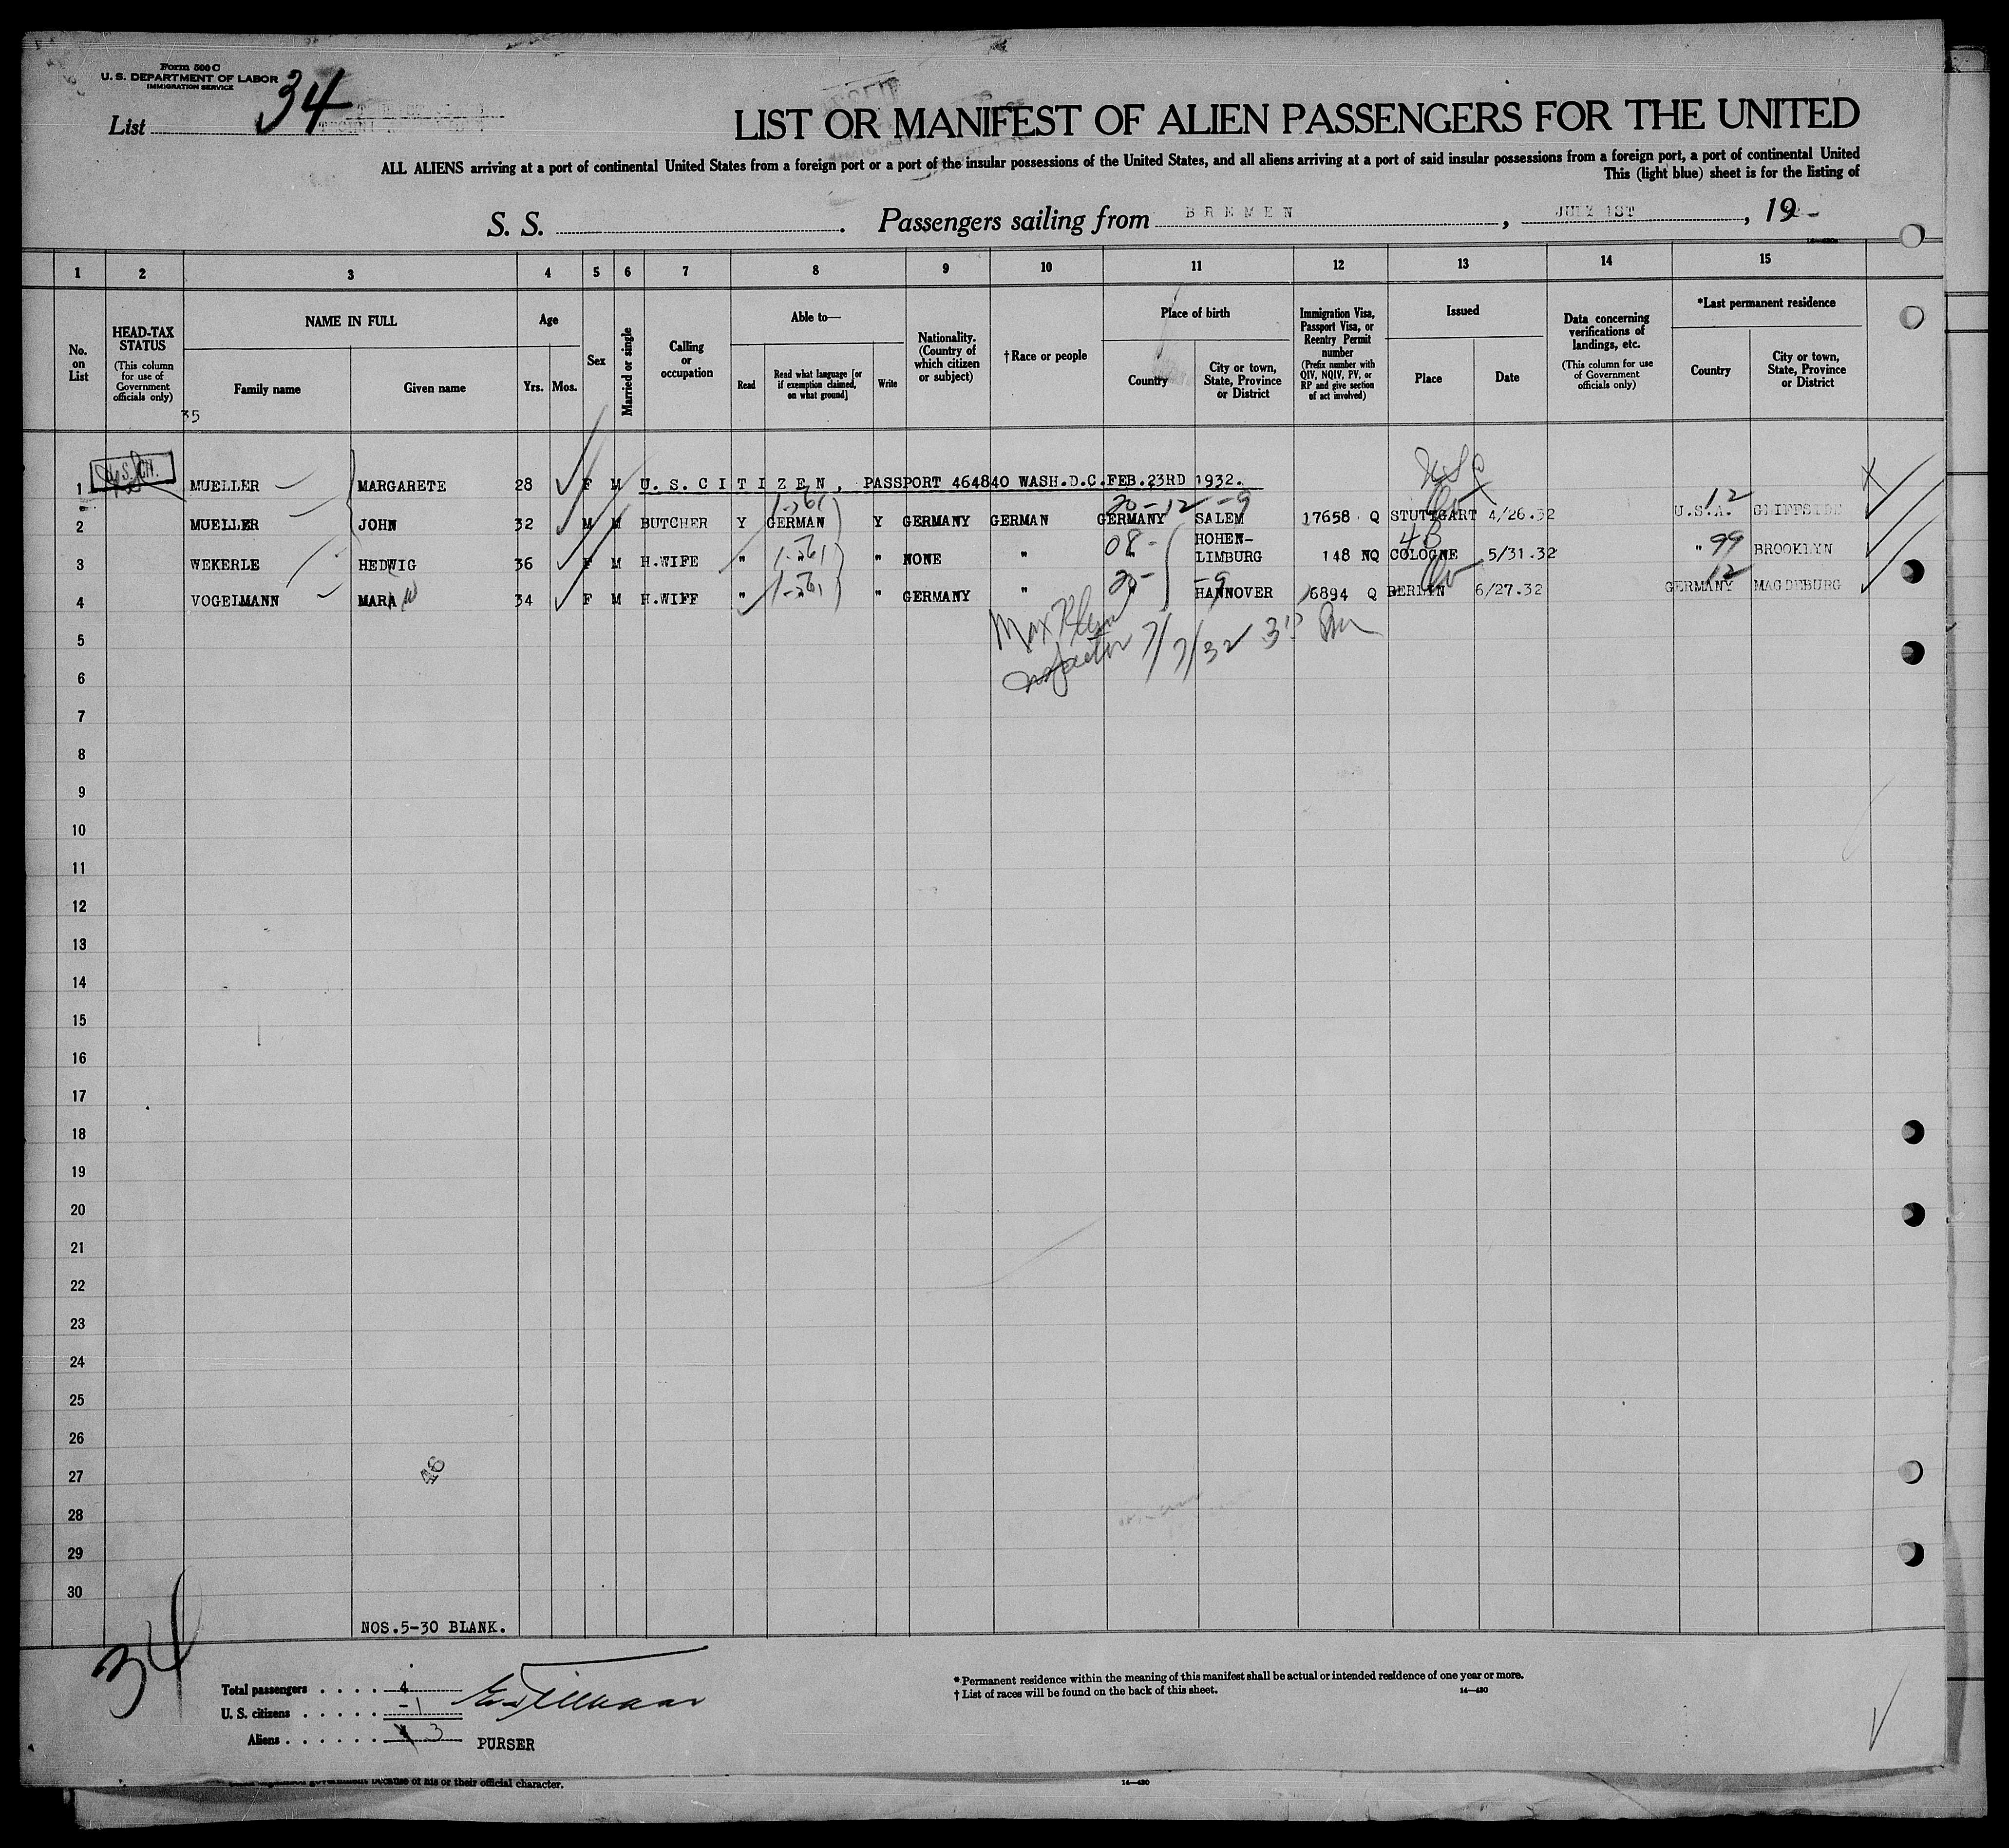 Form 500 C
U. S. DEPARTMENT OF LABOR
IMMIGRATION SERVICE
List 34
LIST OR MANIFEST OF ALIEN PASSENGERS FOR THE UNITED
ALL ALIENS arriving at a port of continental United States from a foreign port or a port of the insular possessions of the United States, and all aliens arriving at a port of said insular possessions from a foreign port, a port of continental United
This (light blue) sheet is for the listing of
S. S. . Passengers sailing from BREMEN, JULY 1ST, 19
1 2 3 4 5 6 7 8 9 10 11 12 13 14 15
No. on List
HEAD-TAX STATUS (This column for use of Government officials only)
NAME IN FULL
Family name
Given name
Age
Yrs. Mos.
Sex
Married or single
Calling or occupation
Able to—
Read
Read what language [or if exemption claimed, on what ground]
Write
Nationality. (Country of which citizen or subject)
†Race or people
Place of birth
Country
City or town, State, Province or District
Immigration Visa, Passport Visa, or Reentry Permit number (Prefix number with QIV, NQIV, PV, or RP and give section of act involved)
Issued
Place
Date
Data concerning verifications of landings, etc. (This column for use of Government officials only)
*Last permanent residence
Country
City or town, State, Province or District
35
1 MUELLER MARGARETE 28 F M U. S. CITIZEN, PASSPORT 464840 WASH.D.C. FEB.23RD 1932.
USC
1-261 20-12 -9 12
2 MUELLER JOHN 32 M M BUTCHER Y GERMAN Y GERMANY GERMAN GERMANY SALEM 17658 Q STUTTGART 4/26.32 U.S.A. CLIFFSIDE
1-261 08- 4B 99
3 WEKERLE HEDWIG 36 F M H.WIFE " " " NONE " " HOHEN-
LIMBURG 148 NQ COLOGNE 5/31.32 " BROOKLYN
1-261 20- -9 12
4 VOGELMANN MARA 34 F M H.WIFE " " " GERMANY " " HANNOVER 6894 Q BERLIN 6/27.32 GERMANY MAGDEBURG
Max Klein
Inspector 7/7/32
5
6
7
8
9
10
11
12
13
14
15
16
17
18
19
20
21
22
23
24
25
26
27
28
29
30
NOS.5-30 BLANK.
34
Total passengers . . . . 4
U. S. citizens . . . . . -1
Aliens . . . . . . 3
PURSER
* Permanent residence within the meaning of this manifest shall be actual or intended residence of one year or more.
† List of races will be found on the back of this sheet.
14—430
because of his or their official character.
14—430